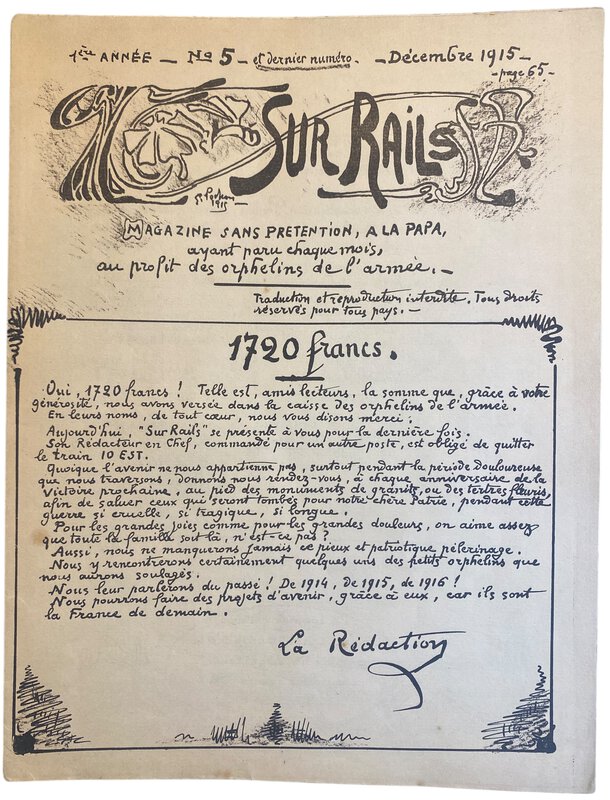 1ère ANNÉE — No 5 — et dernier numéro. — Décembre 1915 —
— page 65 —
SUR RAILS
1915
MAGAZINE SANS PRETENTION, A LA PAPA,
ayant paru chaque mois,
au profit des orphelins de l'armée. —
Traduction et reproduction interdite. Tous droits
réservés pour tous pays. —
1720 francs.
Oui, 1720 francs ! Telle est, amis lecteurs, la somme que, grâce à votre
générosité, nous avons versée dans la caisse des orphelins de l'armée.
En leurs noms, de tout cœur, nous vous disons merci.
Aujourd'hui, "Sur Rails" se présente à vous pour la dernière fois.
Son Rédacteur en Chef, commandé pour un autre poste, est obligé de quitter
le train 10 EST.
Quoique l'avenir ne nous appartienne pas, surtout pendant la période douloureuse
que nous traversons, donnons nous rendez-vous, à chaque anniversaire de la
Victoire prochaine, au pied des monuments de granits, ou des tertres fleuris,
afin de saluer ceux qui seront tombés pour notre chère Patrie, pendant cette
guerre si cruelle, si tragique, si longue.
Pour les grandes joies comme pour les grandes douleurs, on aime assez
que toute la famille soit là, n'est-ce pas ?
Aussi, nous ne manquerons jamais ce pieux et patriotique pèlerinage.
Nous y rencontrerons certainement quelques uns des petits orphelins que
nous aurons soulagés.
Nous leur parlerons du passé ! De 1914, de 1915, de 1916 !
Nous pourrons faire des projets d'avenir, grâce à eux, car ils sont
la France de demain.
La Rédaction